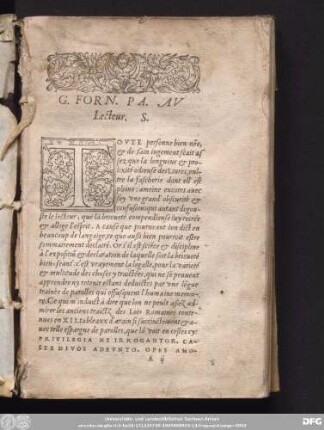 G. FORN. PA. AV
Lecteur. S.
TOVTE personne bien née,
& de sain iugement sçait as-
sez que la longueur & pro-
lixité odieuse des Liures, oul-
tre la fascherie dont ell' est
pleine: ameine encores auec
soy vne grand' obscurité &
confusion: qui autant degou-
ste le lecteur, que la briefueté compendieuse luy recrée
& allige l'esprit. A cause que souuent on dict en
beaucoup de langaige ce que aussi bien pourroit estre
sommairement declairé. Or s'il est sciēce & discipline
à l'expositiō & declaration de laquelle soit la briefueté
bien-seant: c'est vrayement la legalle, pour la varieté
& multitude des choses y traictées, qui ne se peuuent
apprendre ny retenir estans deduictes par vne lōgue
trainée de parolles qui offusquent l'humaine memoi-
re. Ce qui m'induict à dire que lon ne peult assez ad-
mirer les anciens traictz des Loix Romaines conte-
nues en XII. tableaux d'arain si succinctement & a-
uec telle espargne de parolles, que lō voit en cestes cy:
PRIVILEGIA NE IRROGANTOR. CA-
STE DIVOS ADEVNTO. OPES AMO-
A ij